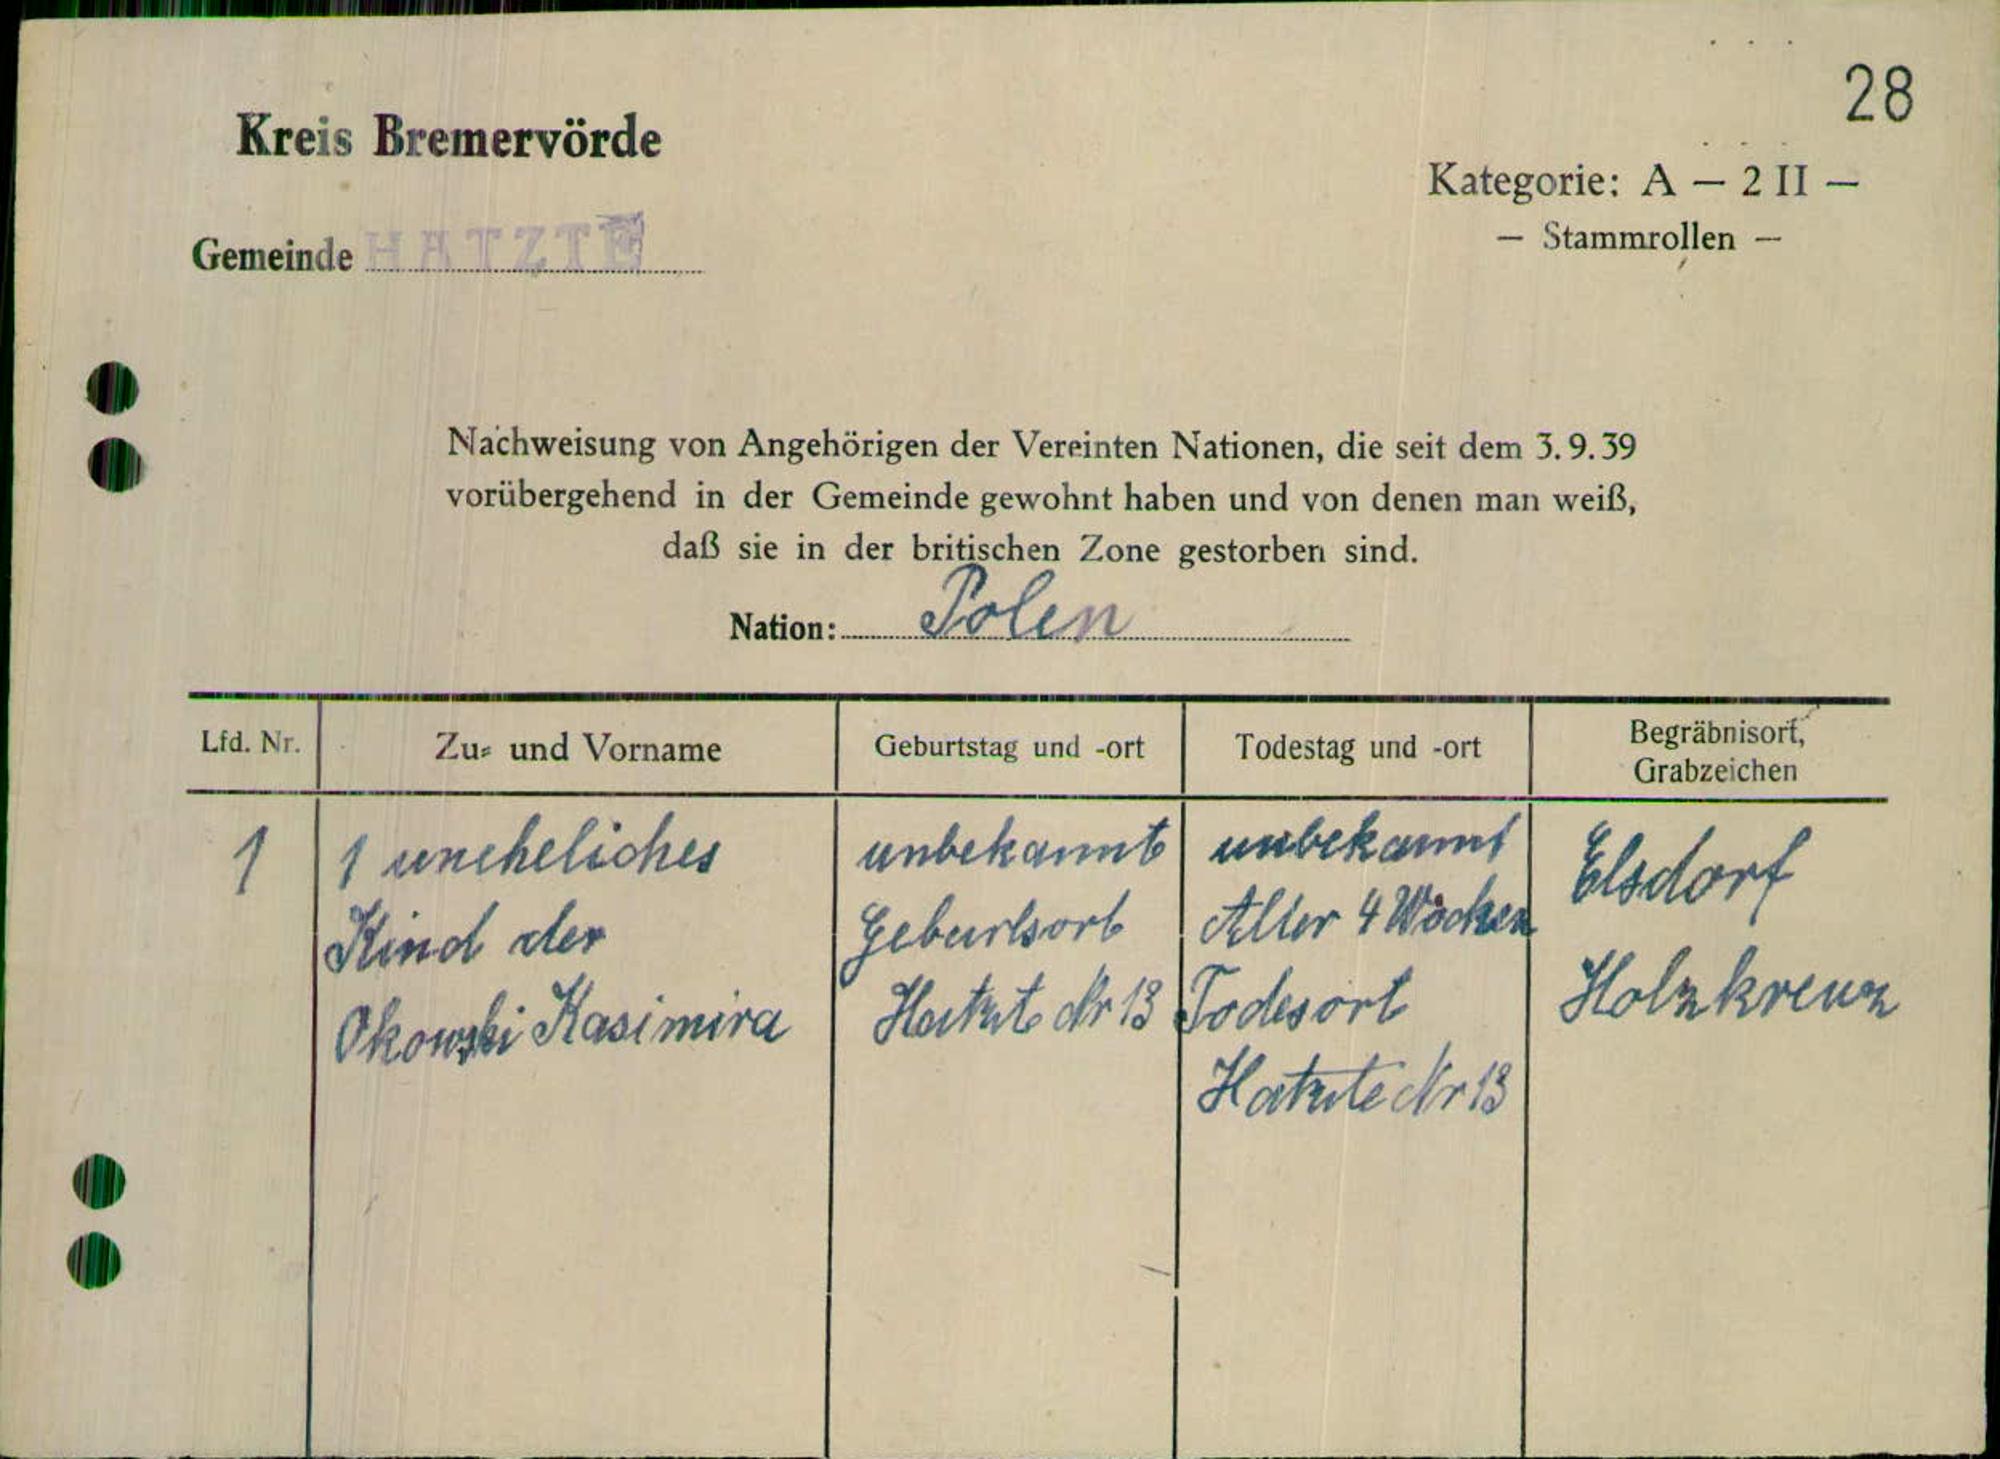 28
Kreis Bremervörde
Kategorie: A — 2 II —
— Stammrollen —
Gemeinde HATZTE
Nachweisung von Angehörigen der Vereinten Nationen, die seit dem 3.9.39
vorübergehend in der Gemeinde gewohnt haben und von denen man weiß,
daß sie in der britischen Zone gestorben sind.
Nation: Polen
Lfd. Nr.
Zu- und Vorname
Geburtstag und -ort
Todestag und -ort
Begräbnisort,
Grabzeichen
1
1 uneheliches
Kind der
Okowski Kasimira
unbekannt
Geburtsort
Hatzte Nr 13
unbekannt
Alter 4 Wochen
Todesort
Hatzte Nr 13
Elsdorf
Holzkreuz